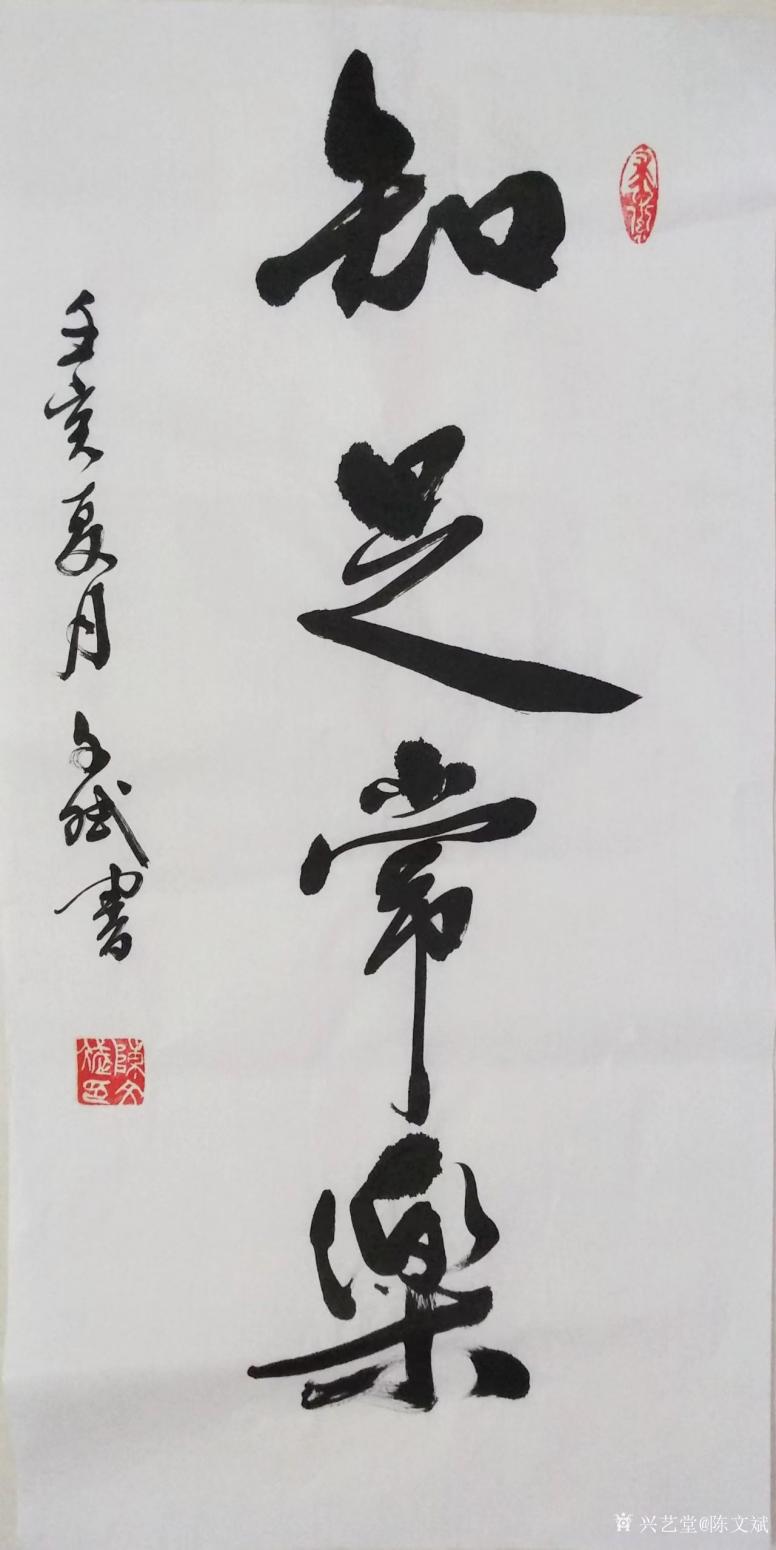 知足常樂
壬寅夏月文斌書
陳文斌印
兴艺堂@陈文斌